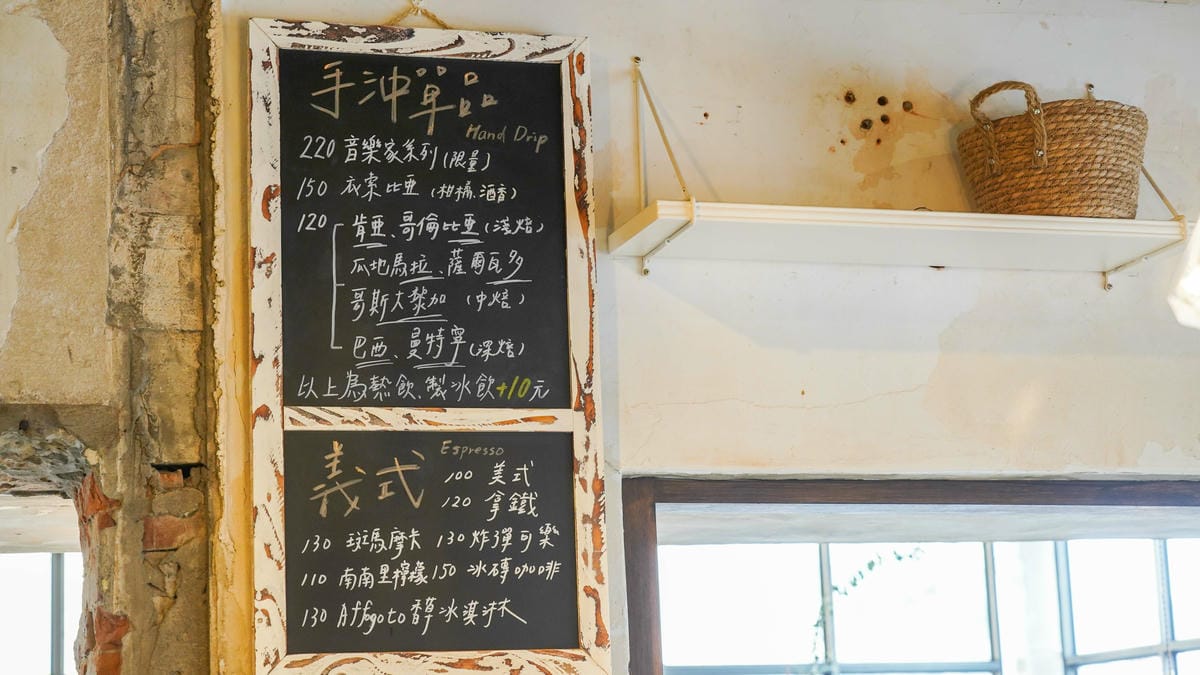 手沖單品
Hand Drip
220 音樂家系列(限量)
150 衣索比亞(柑橘、酒香)
120 肯亞、哥倫比亞(淺焙)
瓜地馬拉、薩爾瓦多
哥斯大黎加(中焙)
巴西、曼特寧(深焙)
以上為熱飲、製冰飲+10元
義式
Espresso
100 美式
120 拿鐵
130 斑馬摩卡 130 炸彈可樂
110 南南里檸檬 150 冰磚咖啡
130 Affogoto香草冰淇淋